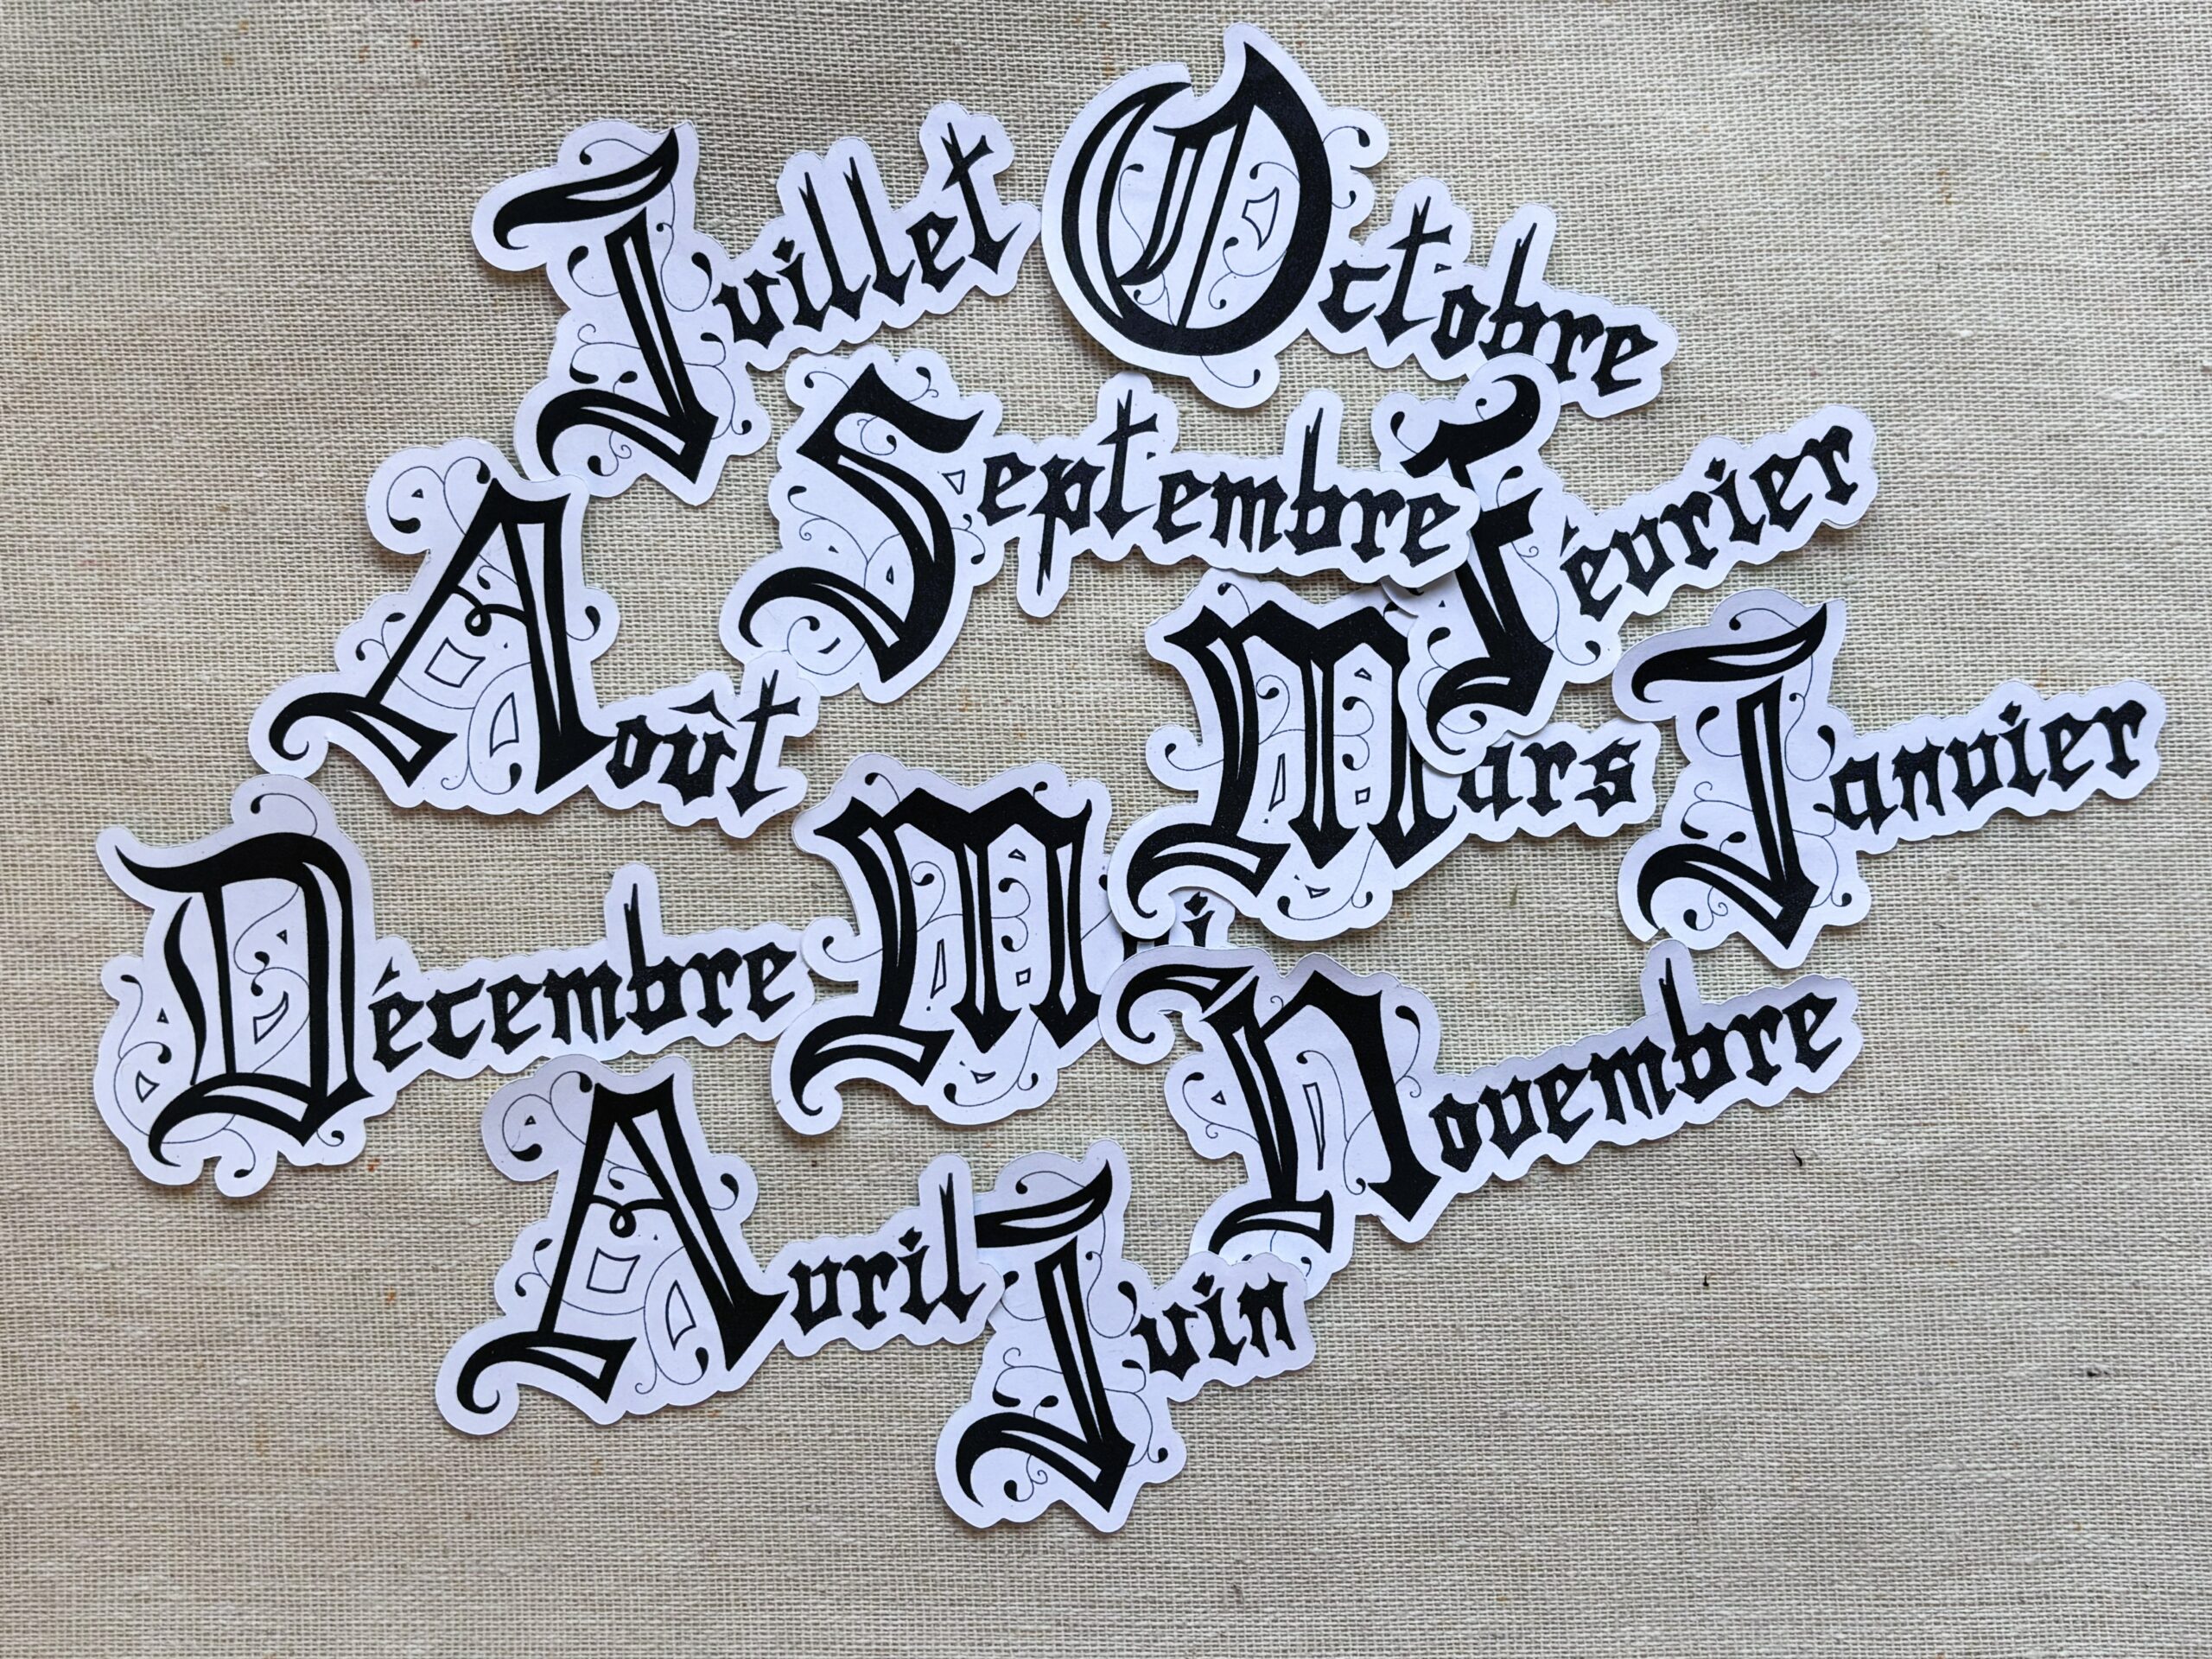 Juillet
Octobre
Septembre
Février
Août
Mars
Janvier
Décembre
Mai
Novembre
Avril
Juin